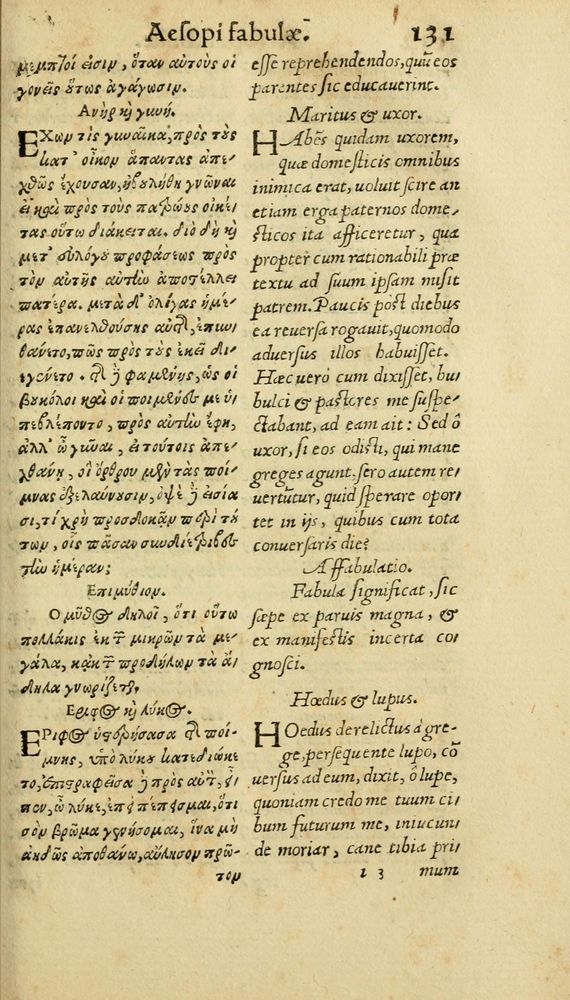 Aesopi fabulæ. 131
μεμπτοί εἰσιν, ὅταν αὐτοὺς οἱ
γονεῖς οὕτως ἀγάγωσιν.
Ἀνὴρ καὶ γυνή.
ΕΧων τὶς γυναῖκα, πρὸς τοὺς
κατ' οἶκον ἅπαντας ἀπε-
χθῶς ἔχουσαν, ἠβουλήθη γνῶναι
εἰ καὶ πρὸς τοὺς πατρῴους οἰκέ-
τας οὕτω διάκειται. διὸ δὴ καὶ
μετ' εὐλόγου προφάσεως πρὸς
τὸν αὐτῆς αὐτὴν ἀποστέλλει
πατέρα. μετὰ δ' ὀλίγας ἡμέ-
ρας ἐπανελθούσης αὐτῆς, ἐπυν-
θάνετο, πῶς πρὸς τοὺς ἐκεῖ διε-
γένετο. τῆς δὲ φαμένης, ὡς οἱ
βουκόλοι καὶ οἱ ποιμένες με ὑ-
πεβλέποντο, πρὸς αὐτὴν ἔφη,
ἀλλ' ὦ γύναι, εἰ τούτοις ἀπε-
χθάνῃ, οἳ ὄρθρου μὲν τὰς ποί-
μνας ἐξελαύνουσιν, ὀψὲ δὲ εἰσία-
σι, τί χρὴ προσδοκᾶν περὶ τού-
των, οἷς πᾶσαν συνδιέτριβες
τὴν ἡμέραν;
Επιμύθιον.
Ο μῦθος δηλοῖ, ὅτι οὕτω
πολλάκις ἐκ τῶν μικρῶν τὰ με-
γάλα, κἀκ τῶν προδήλων τὰ ἄ-
δηλα γνωρίζεται.
Εριφος καὶ λύκος.
ΕΡιφος ὑστερήσασα τῆς ποί-
μνης, ὑπὸ λύκου κατεδιώκε-
το, ἐπιστραφεῖσα δὲ πρὸς αὐτὸν, εἶ-
πεν, ὦ λύκε, ἐπεὶ πέπεισμαι, ὅτι
σὸν βρῶμα γενήσομαι, ἵνα μὴ
ἀηδῶς ἀποθάνω, αὔλησον πρῶ-
τον
esse reprehendendos, quũ eos
parentes sic educauerint.
Maritus & uxor.
HAbẽs quidam uxorem,
quæ domesticis omnibus
inimica erat, uoluit scire an
etiam erga paternos dome-
sticos ita afficeretur, qua
propter cum rationabili præ
textu ad suum ipsam misit
patrem. Paucis pòst diebus
ea reuersa rogauit, quomodo
aduersus illos habuisset.
Hæc uero cum dixisset, bu-
bulci & pastores me suspe-
ctabant, ad eam ait: Sed ô
uxor, si eos odisti, qui mane
greges agunt. sero autem re-
uertũtur, quid sperare opor-
tet in ijs, quibus cum tota
conuersaris die?
Affabulatio.
Fabula significat, sic
sæpe ex paruis magna, &
ex manifestis incerta co-
gnosci.
Hœdus & lupus.
HOedus derelictus à gre-
ge, persequente lupo, cõ
uersus ad eum, dixit, ô lupe,
quoniam credo me tuum ci-
bum futurum me, iniucun-
de moriar, cane tibia pri-
1 3 mum